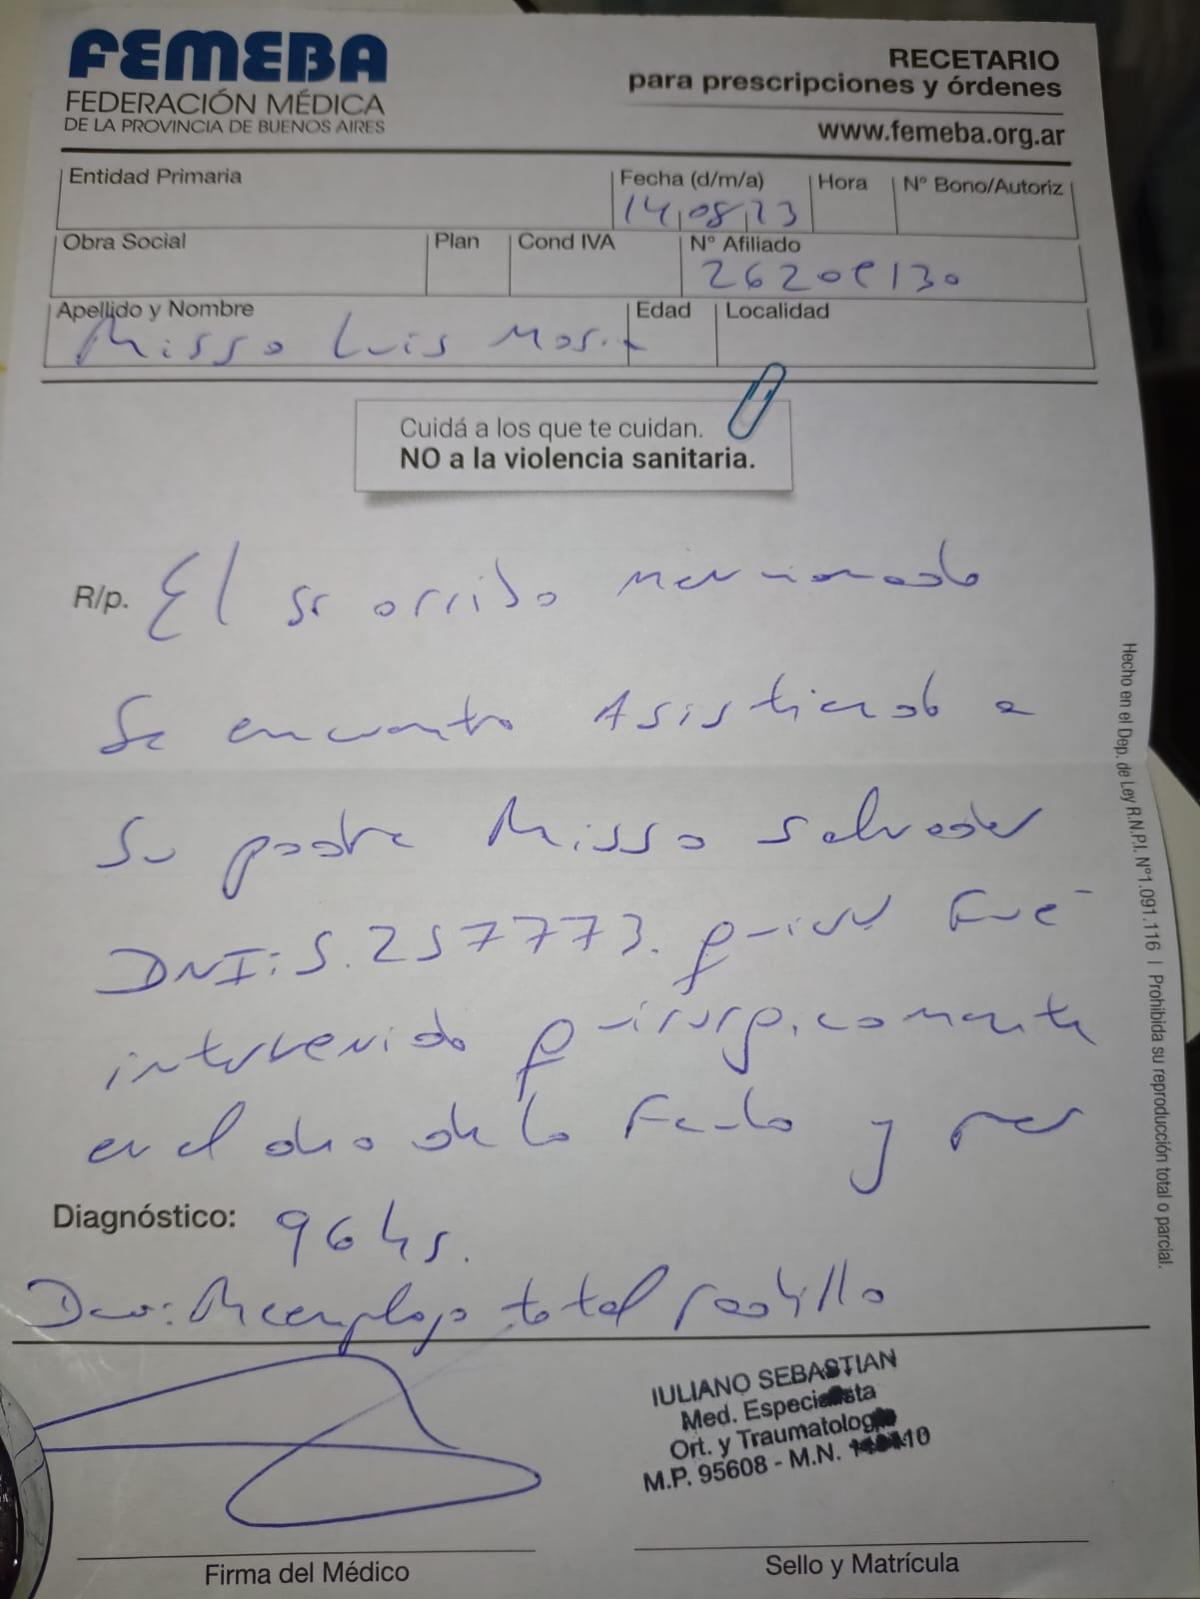 FEMEBA
FEDERACIÓN MÉDICA
DE LA PROVINCIA DE BUENOS AIRES
RECETARIO
para prescripciones y órdenes
www.femeba.org.ar
Entidad Primaria
Fecha (d/m/a)
14,08,23
Hora
N° Bono/Autoriz
Obra Social
Plan
Cond IVA
N° Afiliado
Apellido y Nombre
Misso Luis
Edad
Localidad
Cuidá a los que te cuidan.
NO a la violencia sanitaria.
R/p. El sr arriba mencionado
Se encuentra Asistiendo a
Su padre Misso Salvador
DNI: 5.257773. quien Fué
intervenido quirurgicamente
en el dia de la Fecha y por
Diagnóstico: 96 hs.
Reemplazo total rodilla
IULIANO SEBASTIAN
Med. Especialista
Ort. y Traumatología
M.P. 95608 - M.N.
Firma del Médico
Sello y Matrícula
Hecho en el Dep. de Ley R.N.P.I. N°1.091.116 | Prohibida su reproducción total o parcial.